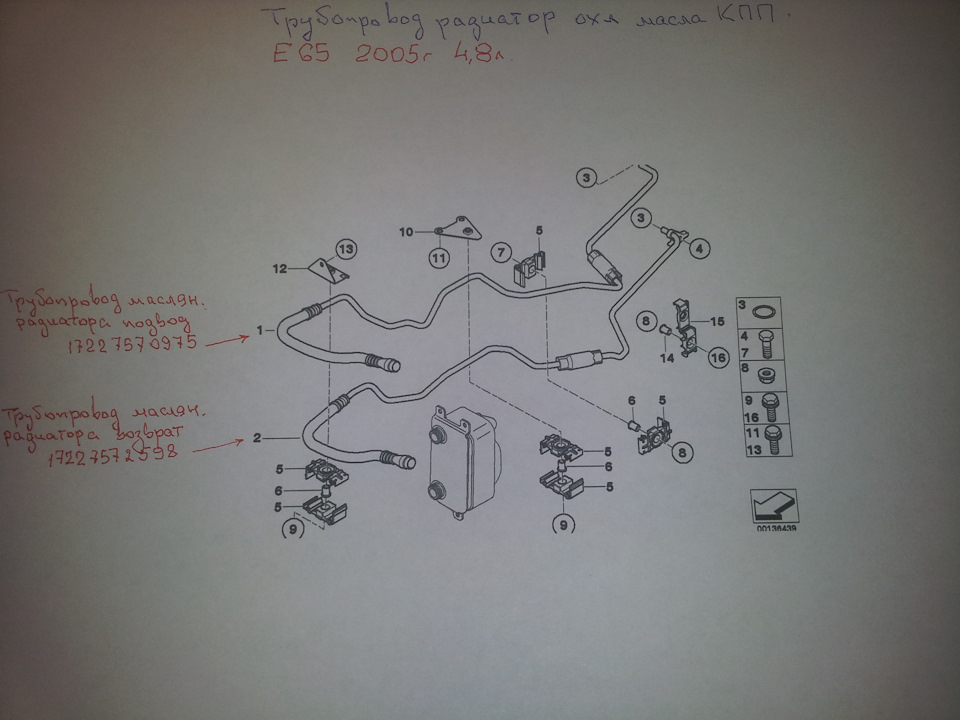 Трубопровод радиатор охл масла КПП.
E65 2005г 4,8л.
3
3
5
10
13
7
4
11
12
Трубопровод маслян.
радиатора подвод
17227570975
1
3
8
15
4
14
16
7
8
Трубопровод маслян.
радиатора возврат
17227572598
2
6
5
9
16
8
11
13
5
5
6
6
5
5
9
9
00136439